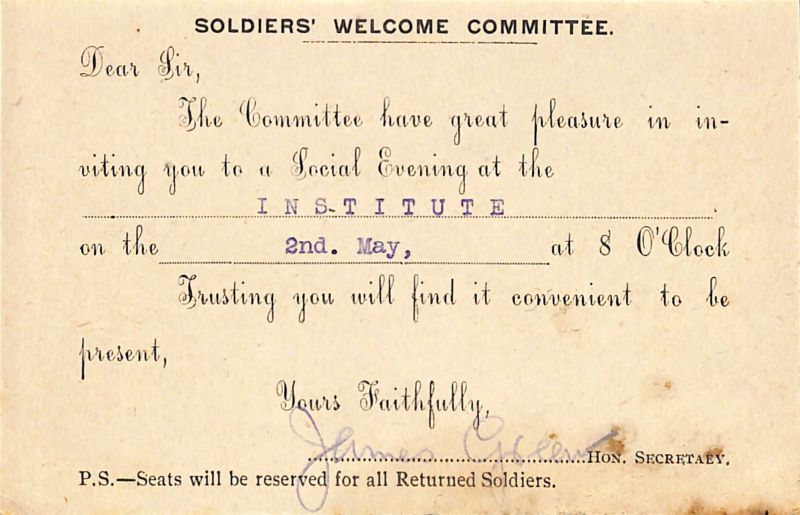 SOLDIERS' WELCOME COMMITTEE.
Dear Sir,
The Committee have great pleasure in in-
viting you to a Social Evening at the
INS-TITUTE
on the 2nd. May, at 8 O'Clock
Trusting you will find it convenient to be
present,
Yours Faithfully,
James
HON. SECRETAEY.
P.S.—Seats will be reserved for all Returned Soldiers.